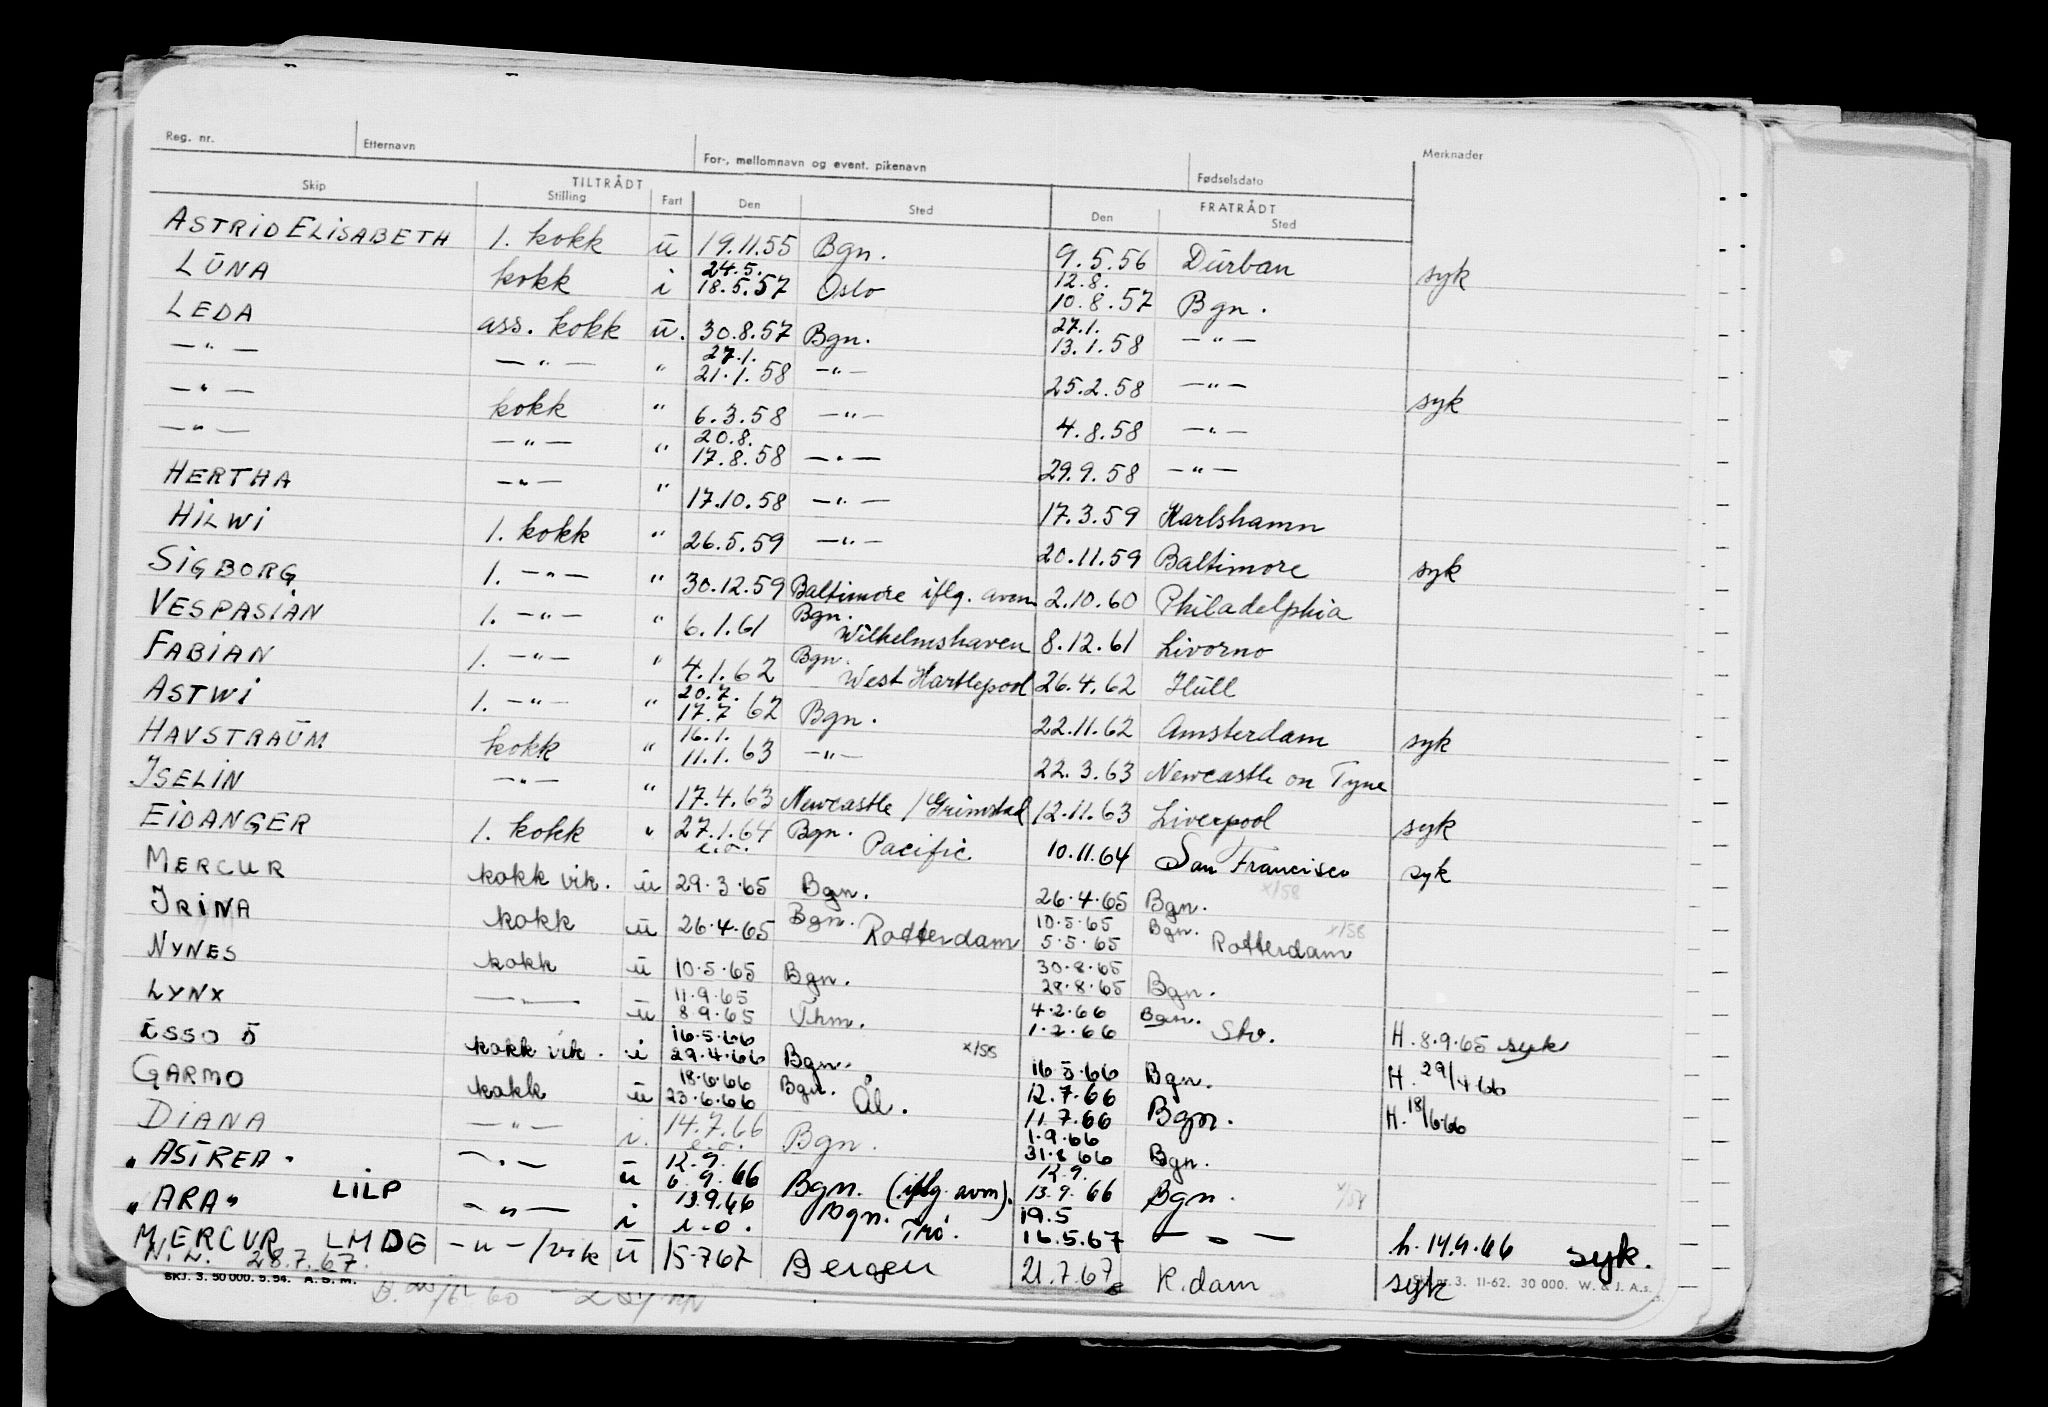 Reg. nr. Etternavn For-, mellomnavn og event. pikenavn Fødselsdato Merknader
TILTRÅDT FRATRÅDT
Skip Stilling Fart Den Sted Den Sted
ASTRID ELISABETH 1. kokk u 19.11.55 Bgn. 9.5.56 Durban syk
LUNA kokk i 24.5. 18.5.57 Oslo 12.8. 10.8.57 Bgn.
LEDA ass. kokk u. 30.8.57 Bgn. 27.1. 13.1.58 —"—
—"— —"— " 27.1. 21.1.58 —"— 25.2.58 —"— syk
—"— kokk " 6.3.58 —"— 4.8.58 —"—
—"— —"— " 20.8. 17.8.58 —"— 29.9.58 —"—
HERTHA —"— " 17.10.58 —"— 17.3.59 Karlshamn
HILWI 1. kokk " 26.5.59 —"— 20.11.59 Baltimore syk
SIGBORG 1. —"— " 30.12.59 Baltimore iflg. avm 2.10.60 Philadelphia
VESPASIAN 1. —"— " 6.1.61 Bgn. Wilhelmshaven 8.12.61 Livorno
FABIAN 1. —"— " 4.1.62 Bgn. West Hartlepool 26.4.62 Hull
ASTWI 1. —"— " 20.7. 17.7 62 Bgn. 22.11.62 Amsterdam syk
HAVSTRAUM kokk " 16.1. 11.1.63 —"— 22.3.63 Newcastle on Tyne
ISELIN —"— " 17.4.63 Newcastle / Grimstad 12.11.63 Liverpool syk
EIDANGER 1. kokk " 27.1.64 i.o. Bgn. Pacific 10.11.64 San Francisco syk
MERCUR kokk vik. u 29.3.65 Bgn. 26.4.65 Bgn. x/58
IRINA kokk u 26.4.65 Bgn. Rotterdam 10.5.65 5.5.65 Bgn. Rotterdam x/58
NYNES kokk u 10.5.65 Bgn. 30.8.65 28.8.65 Bgn.
LYNX —"— u 11.9.65 8.9.65 Thm. 4.2.66 1.2.66 Bgn. Stv. H. 8.9.65 syk
ESSO 5 kokk vik. i 16.5.66 29.4.66 Bgn. x/58 16.5.66 Bgn. H. 29/4 66
GARMO kokk u 18.6.66 23.6.66 Bgn. Ål. 12.7.66 11.7.66 Bgn. H. 18/6 66
DIANA —"— i. 14.7.66 i.o. Bgn. 1.9.66 31.8.66 Bgn.
"ASTREA" —"— u 12.9. 6.9.66 Bgn. (iflg. avm). 12.9. 13.9.66 Bgn. x/58
"ARA" LILP —"— i 13.9.66 i.o. Bgn. Trö. 19.5 16.5.67 —"— h. 14.9.66 syk.
MERCUR LMDG —"—/vik u 15.7.67 Bergen 21.7.67 R.dam syk
N.L. 28.7.67.
SKJ. 3. 50 000. 9.54. A. S. M. 3. 11-62. 30 000. W. & J. A.s.